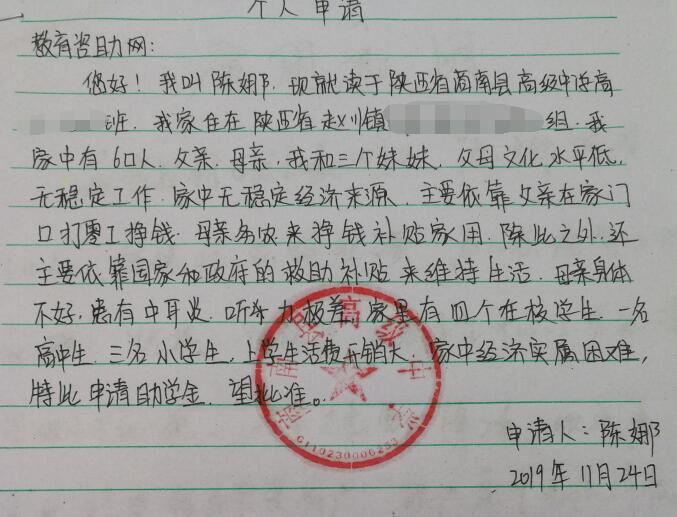 个人申请
教育咨助网：
您好！我叫陈娜，现就读于陕西省商南县高级中学高
班，我家住在陕西省赵川镇 组，我
家中有6口人，父亲，母亲，我和三个妹妹，父母文化水平低，
无稳定工作，家中无稳定经济来源，主要依靠父亲在家门
口打零工挣钱，母亲务农来挣钱补贴家用，除此之外，还
主要依靠国家和政府的救助补贴来维持生活，母亲身体
不好，患有中耳炎，听力极差，家里有四个在校学生，一名
高中生，三名小学生，上学生活费开销大，家中经济实属困难，
特此申请助学金，望批准。
商南县高级中学
6110230006253
申请人：陈娜
2019年11月24日